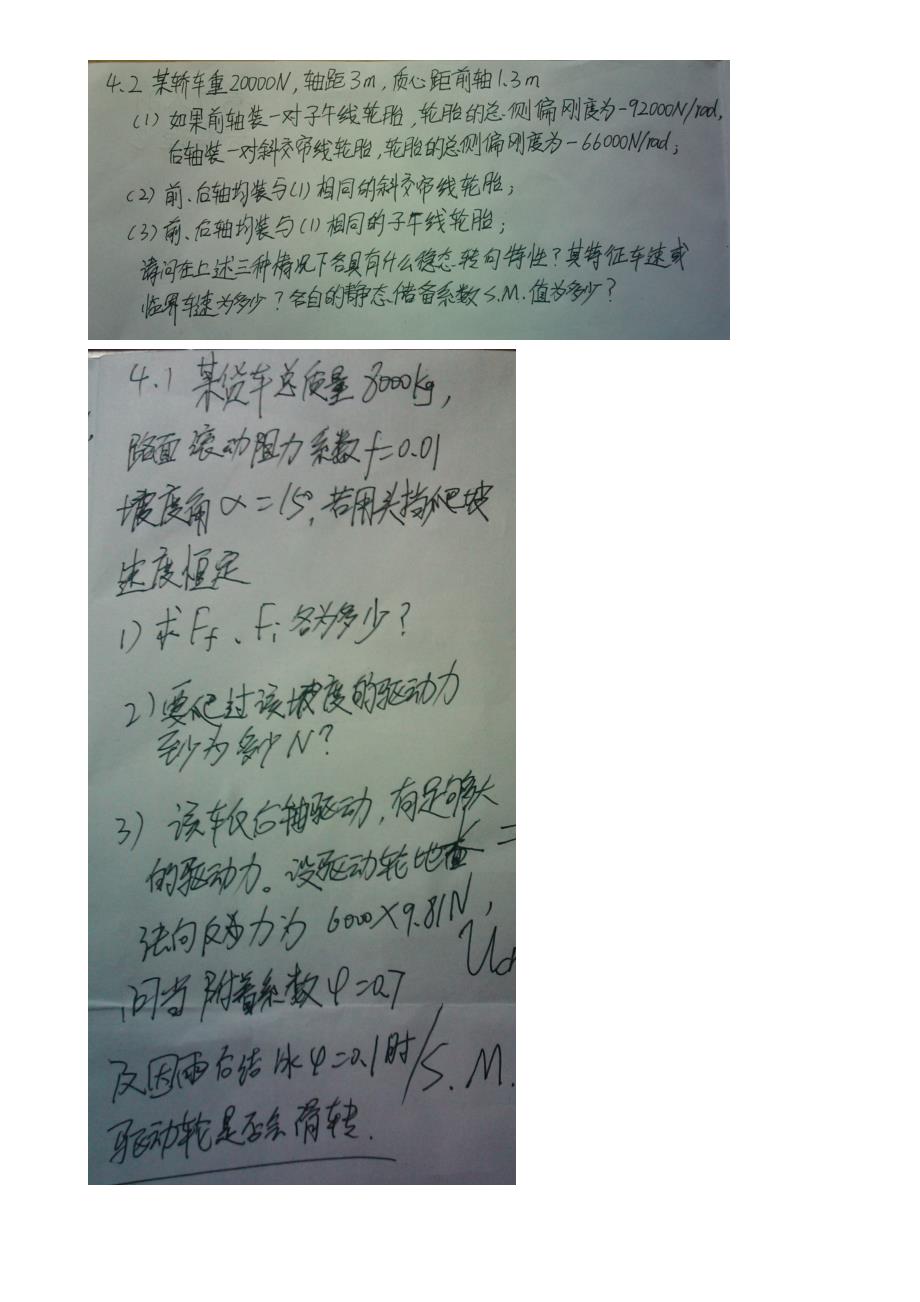 4.2 某轿车重20000N,轴距3m,质心距前轴1.3m
(1) 如果前轴装一对子午线轮胎,轮胎的总侧偏刚度为-92000N/rad,
后轴装一对斜交帘线轮胎,轮胎的总侧偏刚度为-66000N/rad;
(2) 前、后轴均装与(1)相同的斜交帘线轮胎;
(3) 前、后轴均装与(1)相同的子午线轮胎;
请问在上述三种情况下各具有什么稳态转向特性?其特征车速或
临界车速为多少?各自的静态储备系数S.M.值为多少?
4.1 某货车总质量8000kg,
路面滚动阻力系数f=0.01
坡度角α=15°,若用头挡爬坡
速度恒定
1)求Ff、Fi各为多少?
2)要爬过该坡度的驱动力
至少为多少N?
3) 该车仅后轴驱动,有足够大
的驱动力。设驱动轮地 =
法向反力为 6000×9.81N,
问当附着系数φ=0.7
及因雨后结冰φ=0.1时/S.M.
驱动轮是否会滑转.